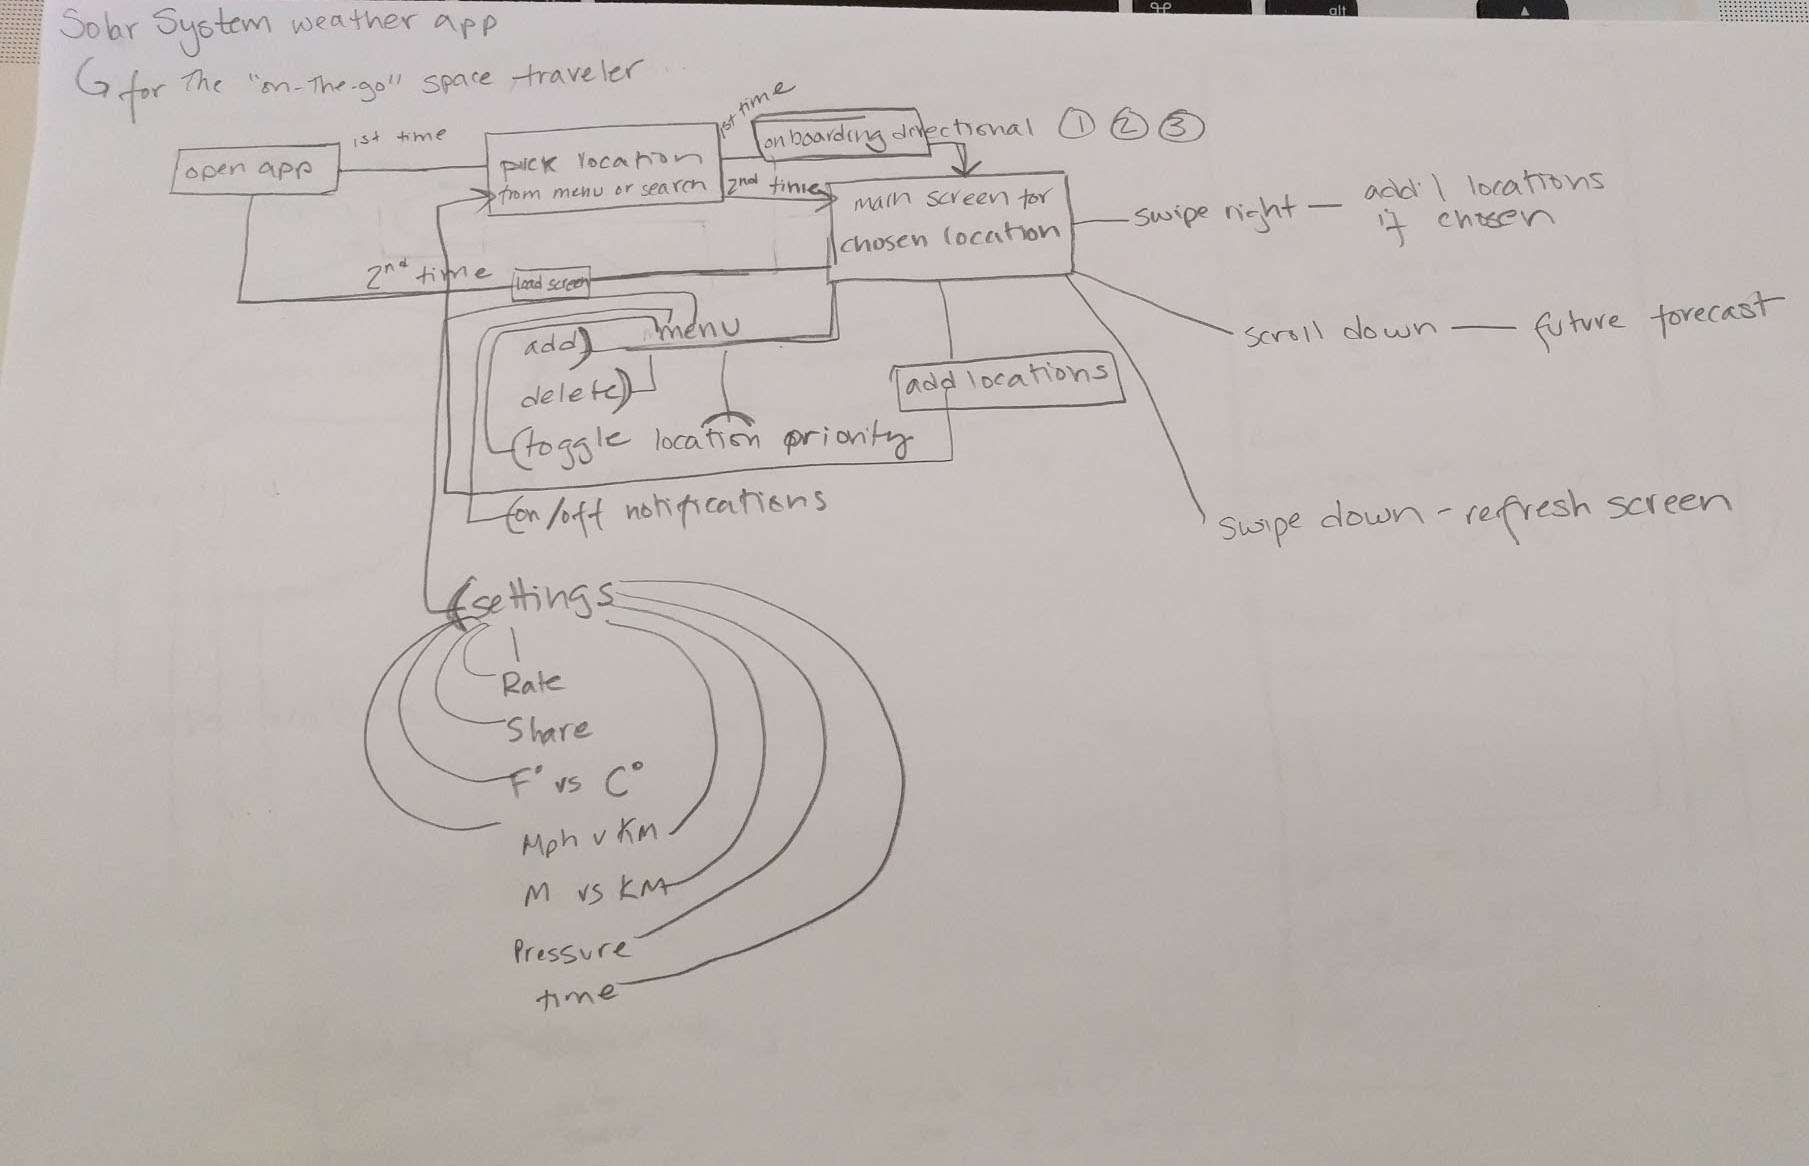 ⌘
alt
▲
Solar System weather app
for the "on-the-go" space traveler
1st time
1st time
onboarding directional ① ② ③
open app
pick location
from menu or search
2nd time
main screen for
chosen location
swipe right — add'l locations
if chosen
2nd time
load screen
menu
add
delete
toggle location priority
add locations
scroll down — future forecast
on/off notifications
swipe down - refresh screen
settings
Rate
Share
F° vs C°
Mph v KM
M vs KM
Pressure
time